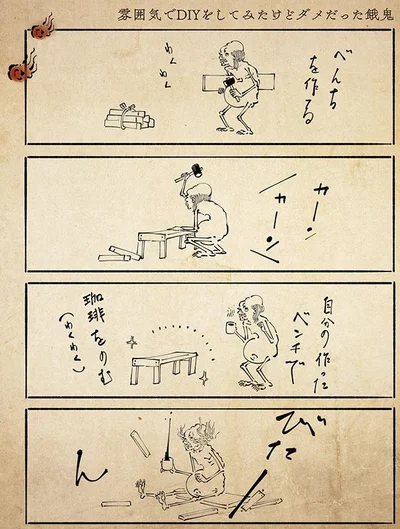 雰囲気でDIYをしてみたけどダメだった餓鬼
べんち
を作る
わく
わく
カーン
カーン
自分の作った
ベンチで
珈琲をのむ
(わくわく)
びたーん